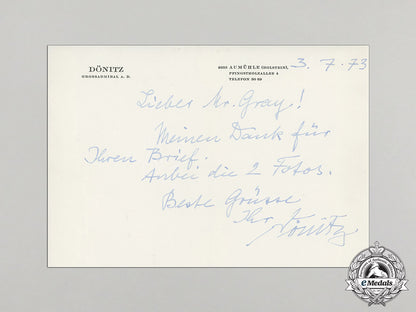 DÖNITZ
GROSSADMIRAL A. D.
AUMÜHLE (HOLSTEIN),
PFINGSTHOLZALLEE 4
TELEFON
3. 7. 73
Lieber Mr. Gray!
Meinen Dank für
Ihren Brief.
Anbei die 2 Fotos.
Beste Grüsse
Ihr
Dönitz
eMedals